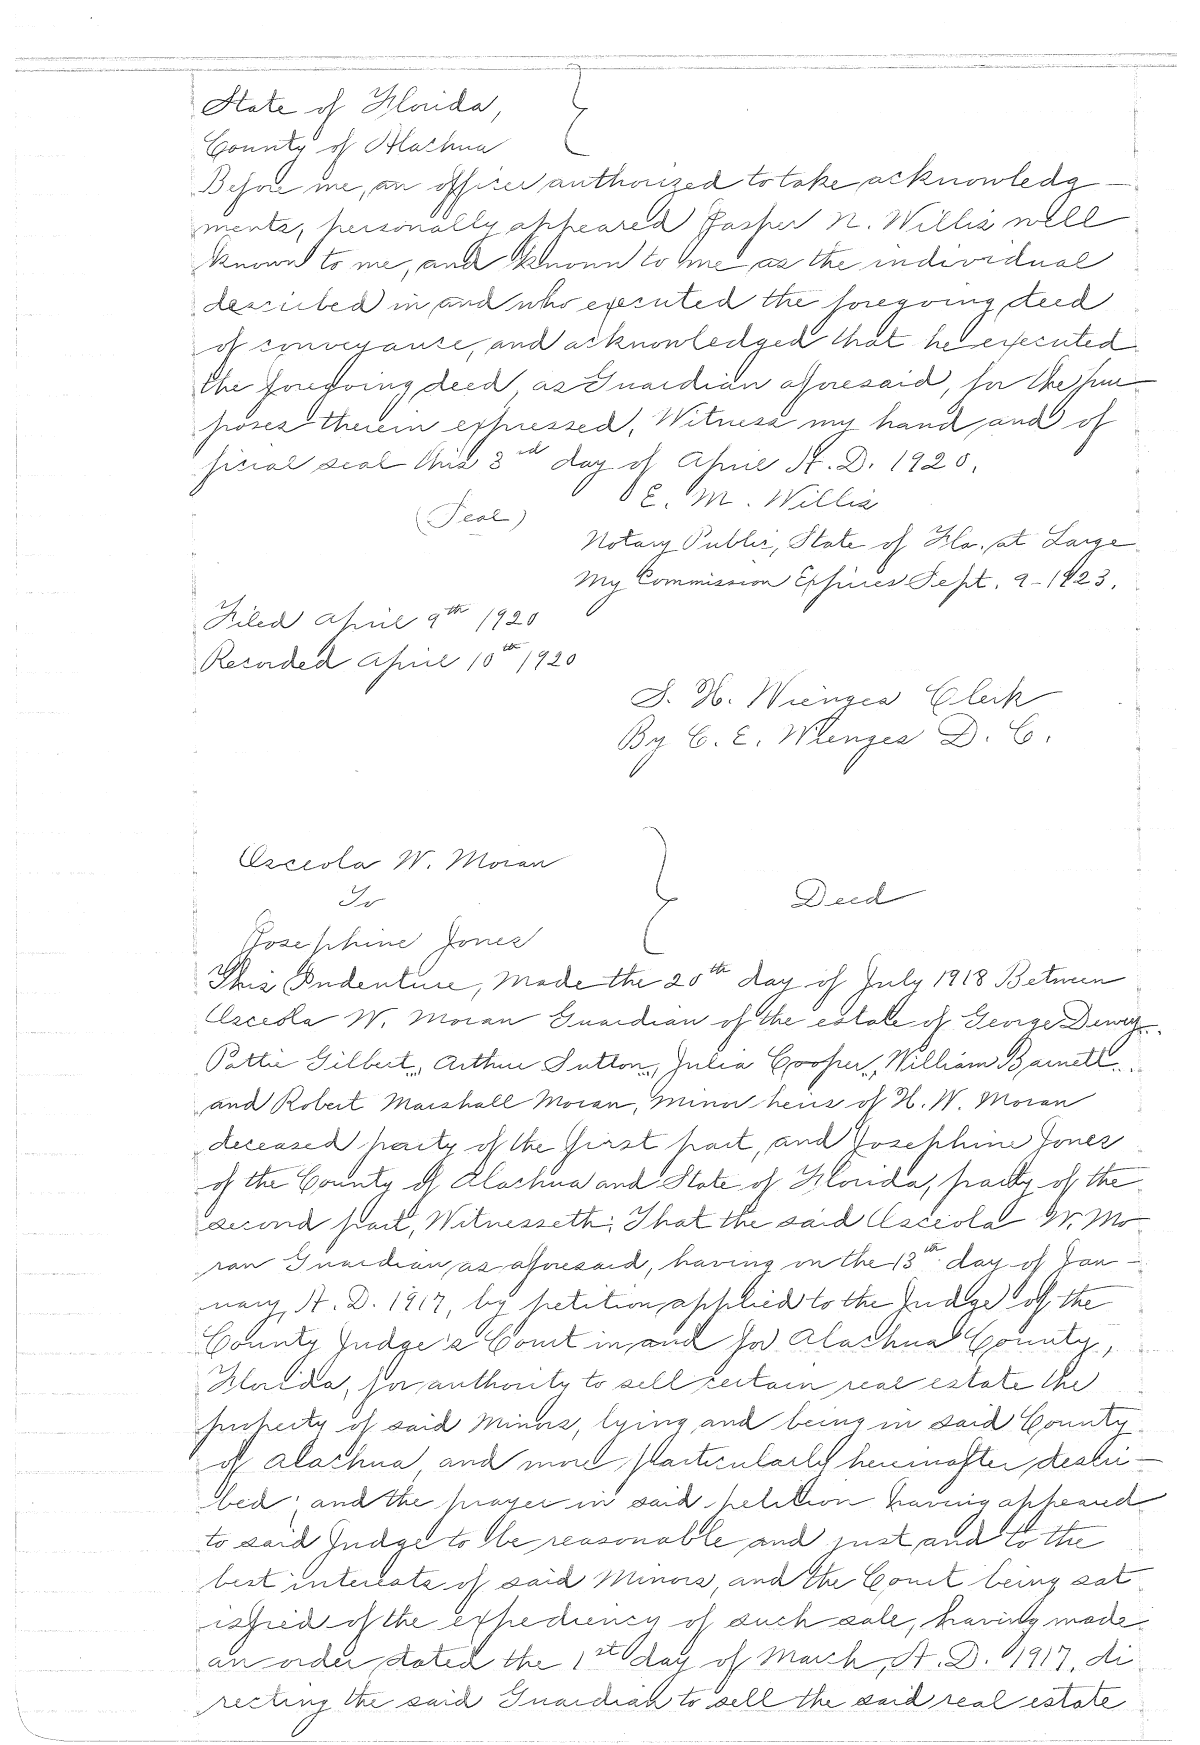 State of Florida,
County of Alachua
Before me, an officer authorized to take acknowledg-
ments, personally appeared Jasper N. Willis well
known to me, and known to me as the individual
described in and who executed the foregoing deed
of conveyance, and acknowledged that he executed
the foregoing deed as Guardian aforesaid, for the pur-
poses therein expressed. Witness my hand and of
ficial seal this 3rd day of April A. D. 1920.
E. M. Willis
(Seal)
Notary Public, State of Fla. at Large
My Commission Expires Sept. 9-1923.
Filed April 9th 1920
Recorded April 10th 1920
S. H. Wienges Clerk
By C. E. Wienges D. C.
Osceola W. Moran
To
Deed
Josephine Jones
This Indenture, Made the 20th day of July 1918 Between
Osceola W. Moran Guardian of the estate of George Dewey,
Pattie Gilbert, Arthur Sutton, Julia Cooper, William Barnett
and Robert Marshall Moran, minor heirs of H. W. Moran
deceased party of the first part, and Josephine Jones
of the County of Alachua and State of Florida, party of the
second part, Witnesseth; That the said Osceola W. Mo
ran Guardian as aforesaid, having on the 13th day of Jan-
uary, A. D. 1917, by petition applied to the Judge of the
County Judge's Court in and for Alachua County,
Florida, for authority to sell certain real estate the
property of said Minors, lying and being in said County
of Alachua and more particularly hereinafter descri-
bed; and the prayer in said petition having appeared
to said Judge to be reasonable and just and to the
best interests of said Minors, and the Court being sat
isfied of the expediency of such sale, having made
an order dated the 1st day of March, A. D. 1917, di
recting the said Guardian to sell the said real estate